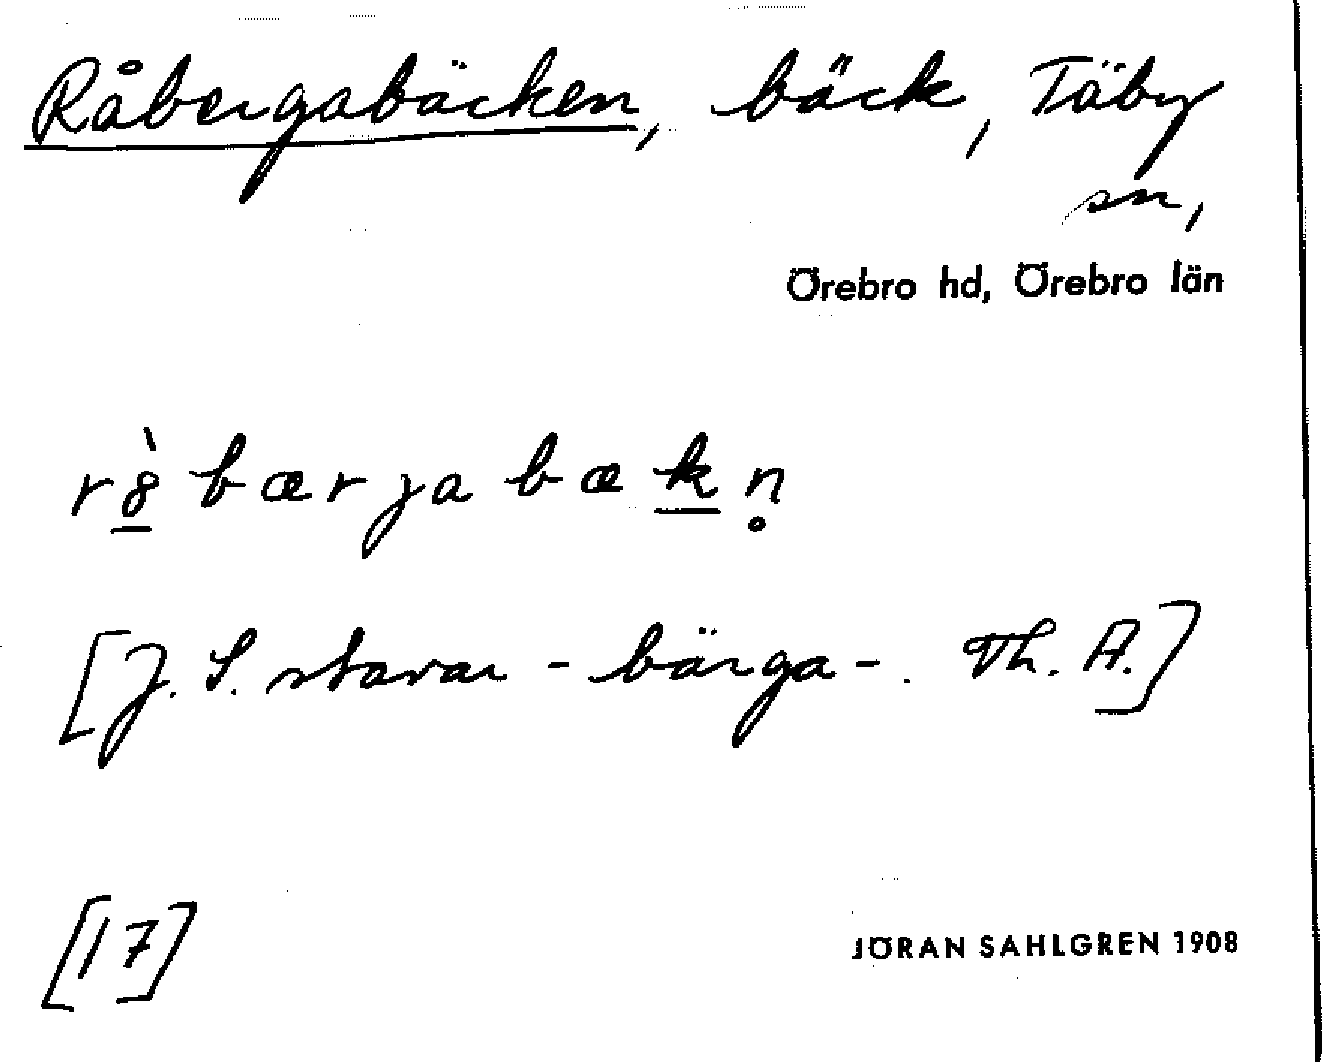 Råbergabäcken, bäck, Täby
sn,
Örebro hd, Örebro län
rȣ̲̀bærjabæk̲n̥
[J. S. stavar -bärga-. Th. A.]
[17]
JÖRAN SAHLGREN 1908